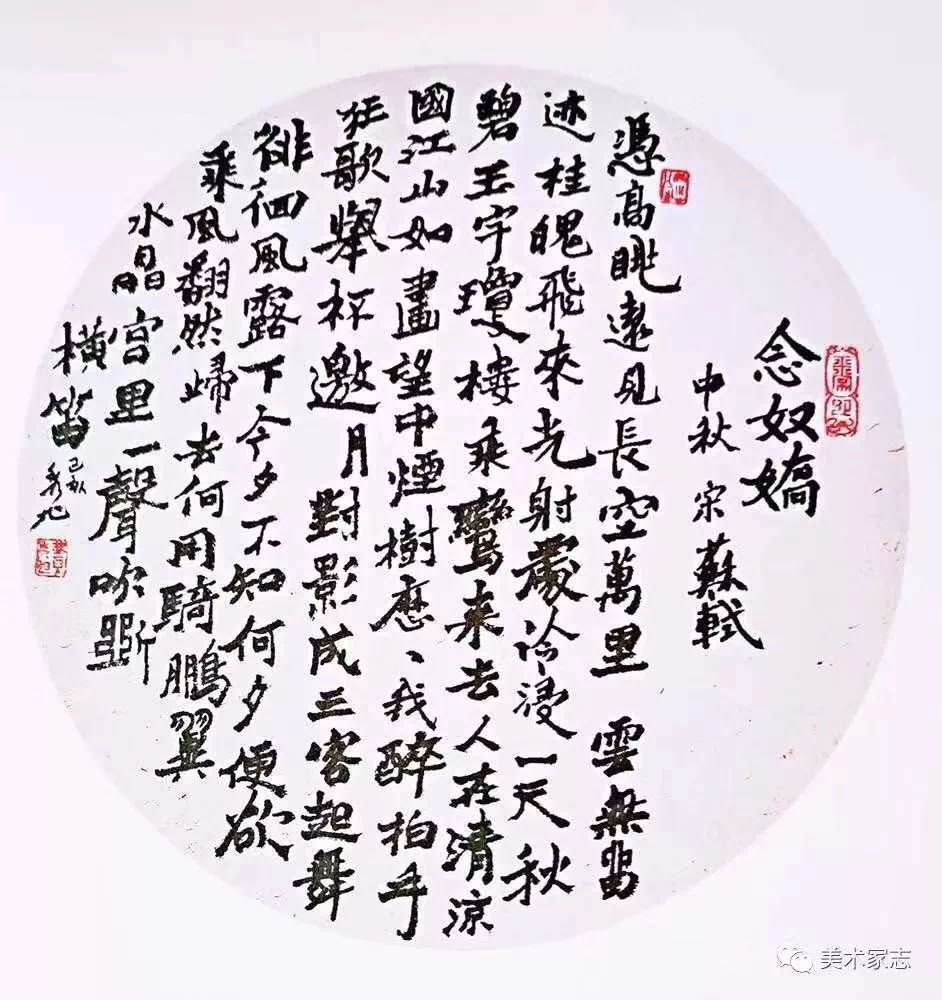 念奴嬌
中秋 宋 蘇軾
憑高眺遠見長空萬里 雲無留
迹桂魄飛來光射處冷浸一天秋
碧玉宇瓊樓乘鸞来去人在清涼
國江山如畫望中煙樹歷、我醉拍手
狂歌舉杯邀月對影成三客起舞
徘徊風露下今夕不知何夕便欲
乘風翻然歸去何用騎鵬翼
水晶宫里一聲吹斷
橫笛
美术家志